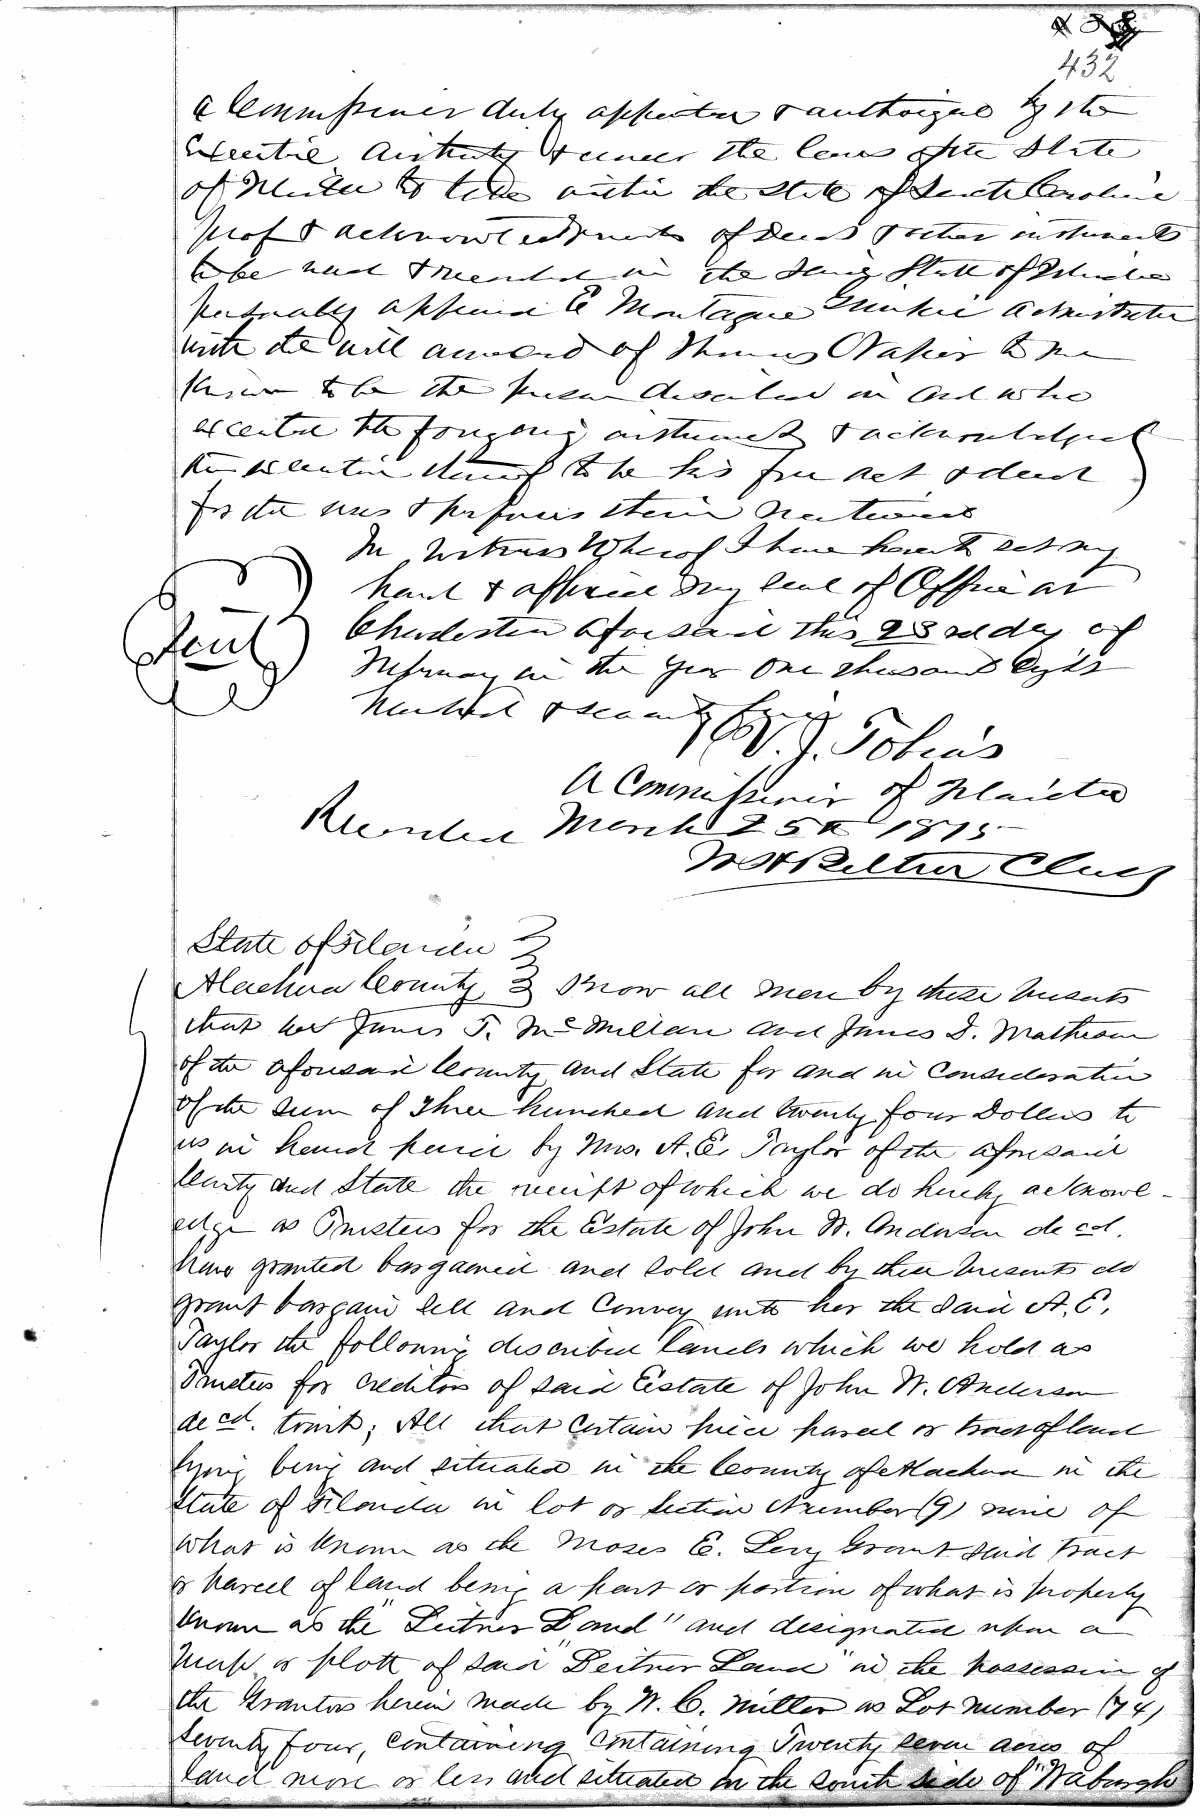 432
a Commissioner duly appointed & authorized by the
Executive Authority & under the laws of the State
of Florida to take within the State of South Carolina
proof & acknowledgments of Deeds & other instruments
to be used & recorded in the said State of Florida
personally appeared E Montague Administrator
with the will annexed of Thomas Napier to me
known to be the person described in and who
executed the foregoing instrument & acknowledged
the execution thereof to be his free act & deed
for the uses & purposes therein mentioned
In witness Whereof I have hereunto set my
hand & affixed my seal of Office at
Seal
Charleston aforesaid this 23rd day of
February in the year One thousand Eight
hundred & seventy
J. Tobias
A Commissioner of Florida
Recorded March 25th 1875
Clerk
State of Florida
Alachua County Know all men by these presents
that we James T. McMillan and James D. Matheson
of the aforesaid County and State for and in Consideration
of the sum of Three hundred and twenty four Dollars to
us in hand paid by Mrs. A. E. Taylor of the aforesaid
County and State the receipt of which we do hereby acknowl-
edge as Trustees for the Estate of John W. Anderson decd.
have granted bargained and sold and by these presents do
grant bargain sell and Convey unto her the said A. E.
Taylor the following described lands which we hold as
Trustees for creditors of said Estate of John W. Anderson
decd. towit; All that Certain piece parcel or tract of land
lying being and situated in the County of Alachua in the
State of Florida in lot or Section Number (9) nine of
what is known as the Moses E. Levy Grant said tract
or parcel of land being a part or portion of what is properly
known as the "Leitner Land" and designated upon a
Map or plott of said "Leitner Land" in the possession of
the Grantors herein made by W. C. Miller as Lot number (74)
Seventy four, containing containing Twenty seven acres of
land more or less and situated on the south side of "Waburgh